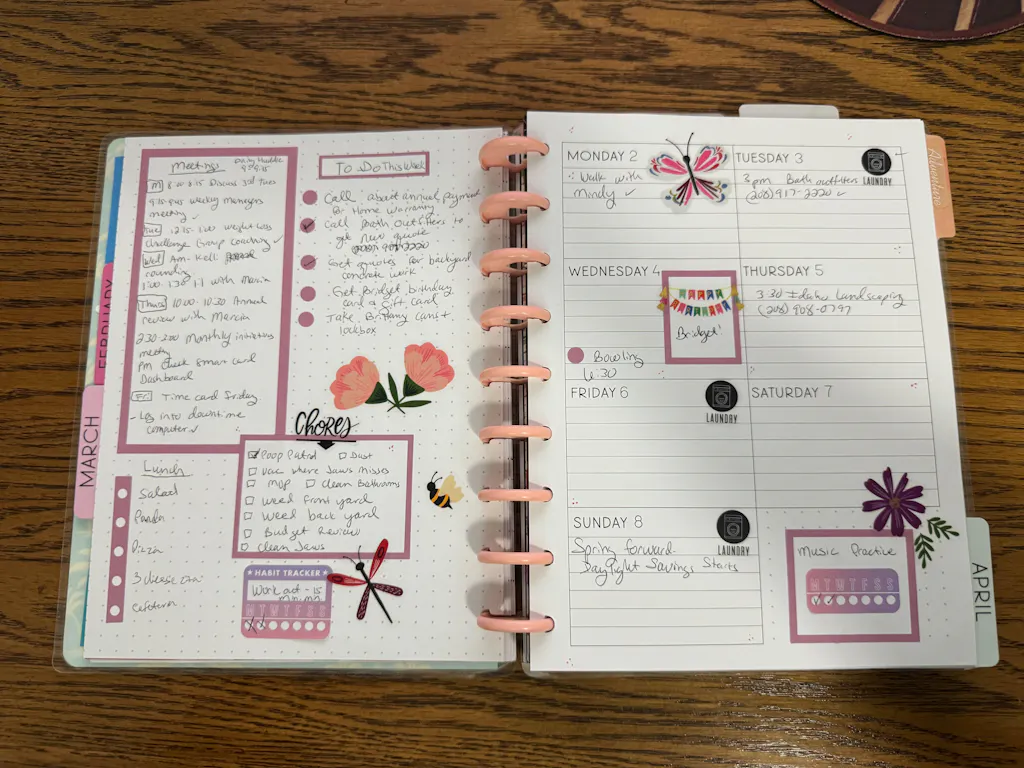 FEBRUARY
MARCH
Meetings
Daily Huddle
9-9:15
M 8:00-8:15 Discuss 3rd Tues
9:15-9:45 weekly managers
meeting ✓
Tue 12:15-1:00 weight loss
challenge Group coaching ✓
Wed Am-Kell
rounding
1:00-1:30 1:1 with Marcia
Thurs 10:00-10:30 Annual
review with Marcia
2:30-3:00 Monthly initiatives
meeting
PM Check Smart card
Dashboard
Fri Time card Friday
- Log into downtime
computer ✓
To Do This Week
Call about annual payment
for Home warranty
Call Bath Outfitters to
get new quote
Get quotes for backyard
concrete work
Get Bridget birthday
card & Gift card
Take Brittany cans +
lockbox
Lunch
Salad
Panda
Pizza
3 cheese
Cafeteria
CHORES
Poop Patrol Dust
vac where Jaws misses
mop Clean Bathrooms
weed front yard
weed back yard
Budget Review
Clean Jaws
HABIT TRACKER
Work out - 15
mins
M T W T F S S
MONDAY 2
Walk with
Mindy ✓
TUESDAY 3
LAUNDRY
3pm Bath outfitters
(208) 917-2220
WEDNESDAY 4
Bridget!
Bowling
6:30
THURSDAY 5
3:30 Idaho Landscaping
(208) 908-0797
FRIDAY 6
LAUNDRY
SATURDAY 7
SUNDAY 8
LAUNDRY
Spring forward-
Daylight Savings Starts
Music Practice
M T W T F S S
APRIL